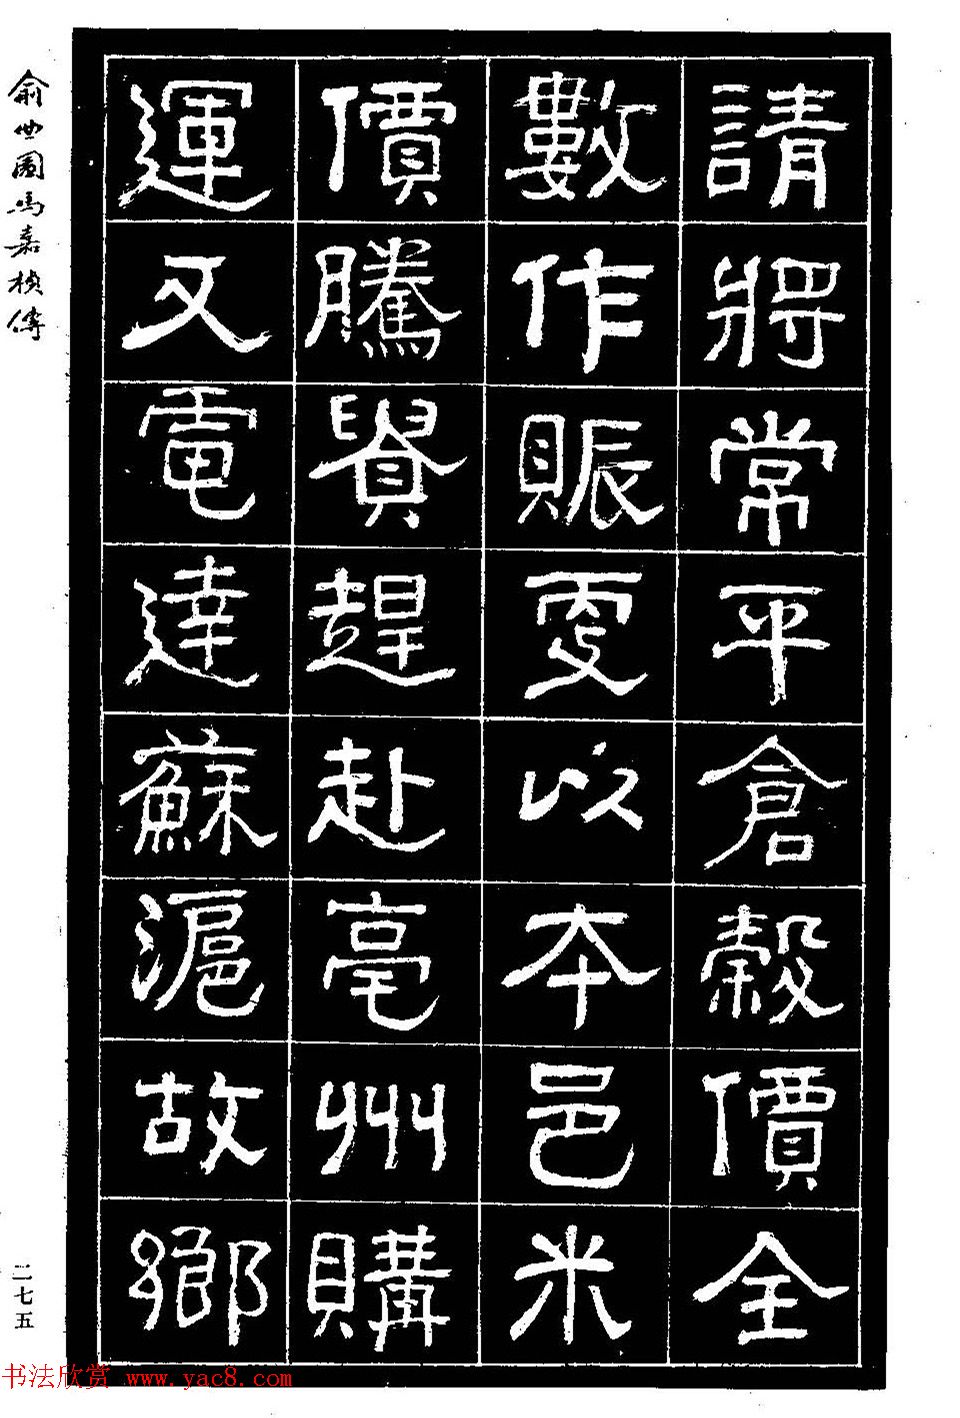 請將常平倉穀價全
數作賑更以本邑米
價騰貴趕赴亳州購
運又電達蘇滬故鄉
俞曲園馬嘉楨傳
二七五
书法欣赏 www.yac8.com